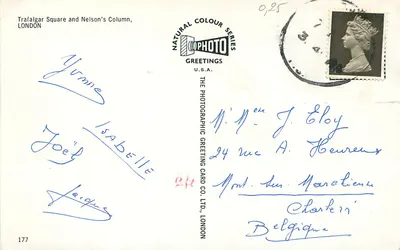 Trafalgar Square and Nelson's Column,
LONDON
NATURAL COLOUR SERIES
PHOTO
GREETINGS
U.S.A.
THE PHOTOGRAPHIC GREETING CARD CO. LTD., LONDON
0,25
Yvonne
ISABELLE
Joël
Jacques
M' Mme J. Eloy
24 rue A. Heureux
Mont sur Marchienne
Charleroi
Belgique
177